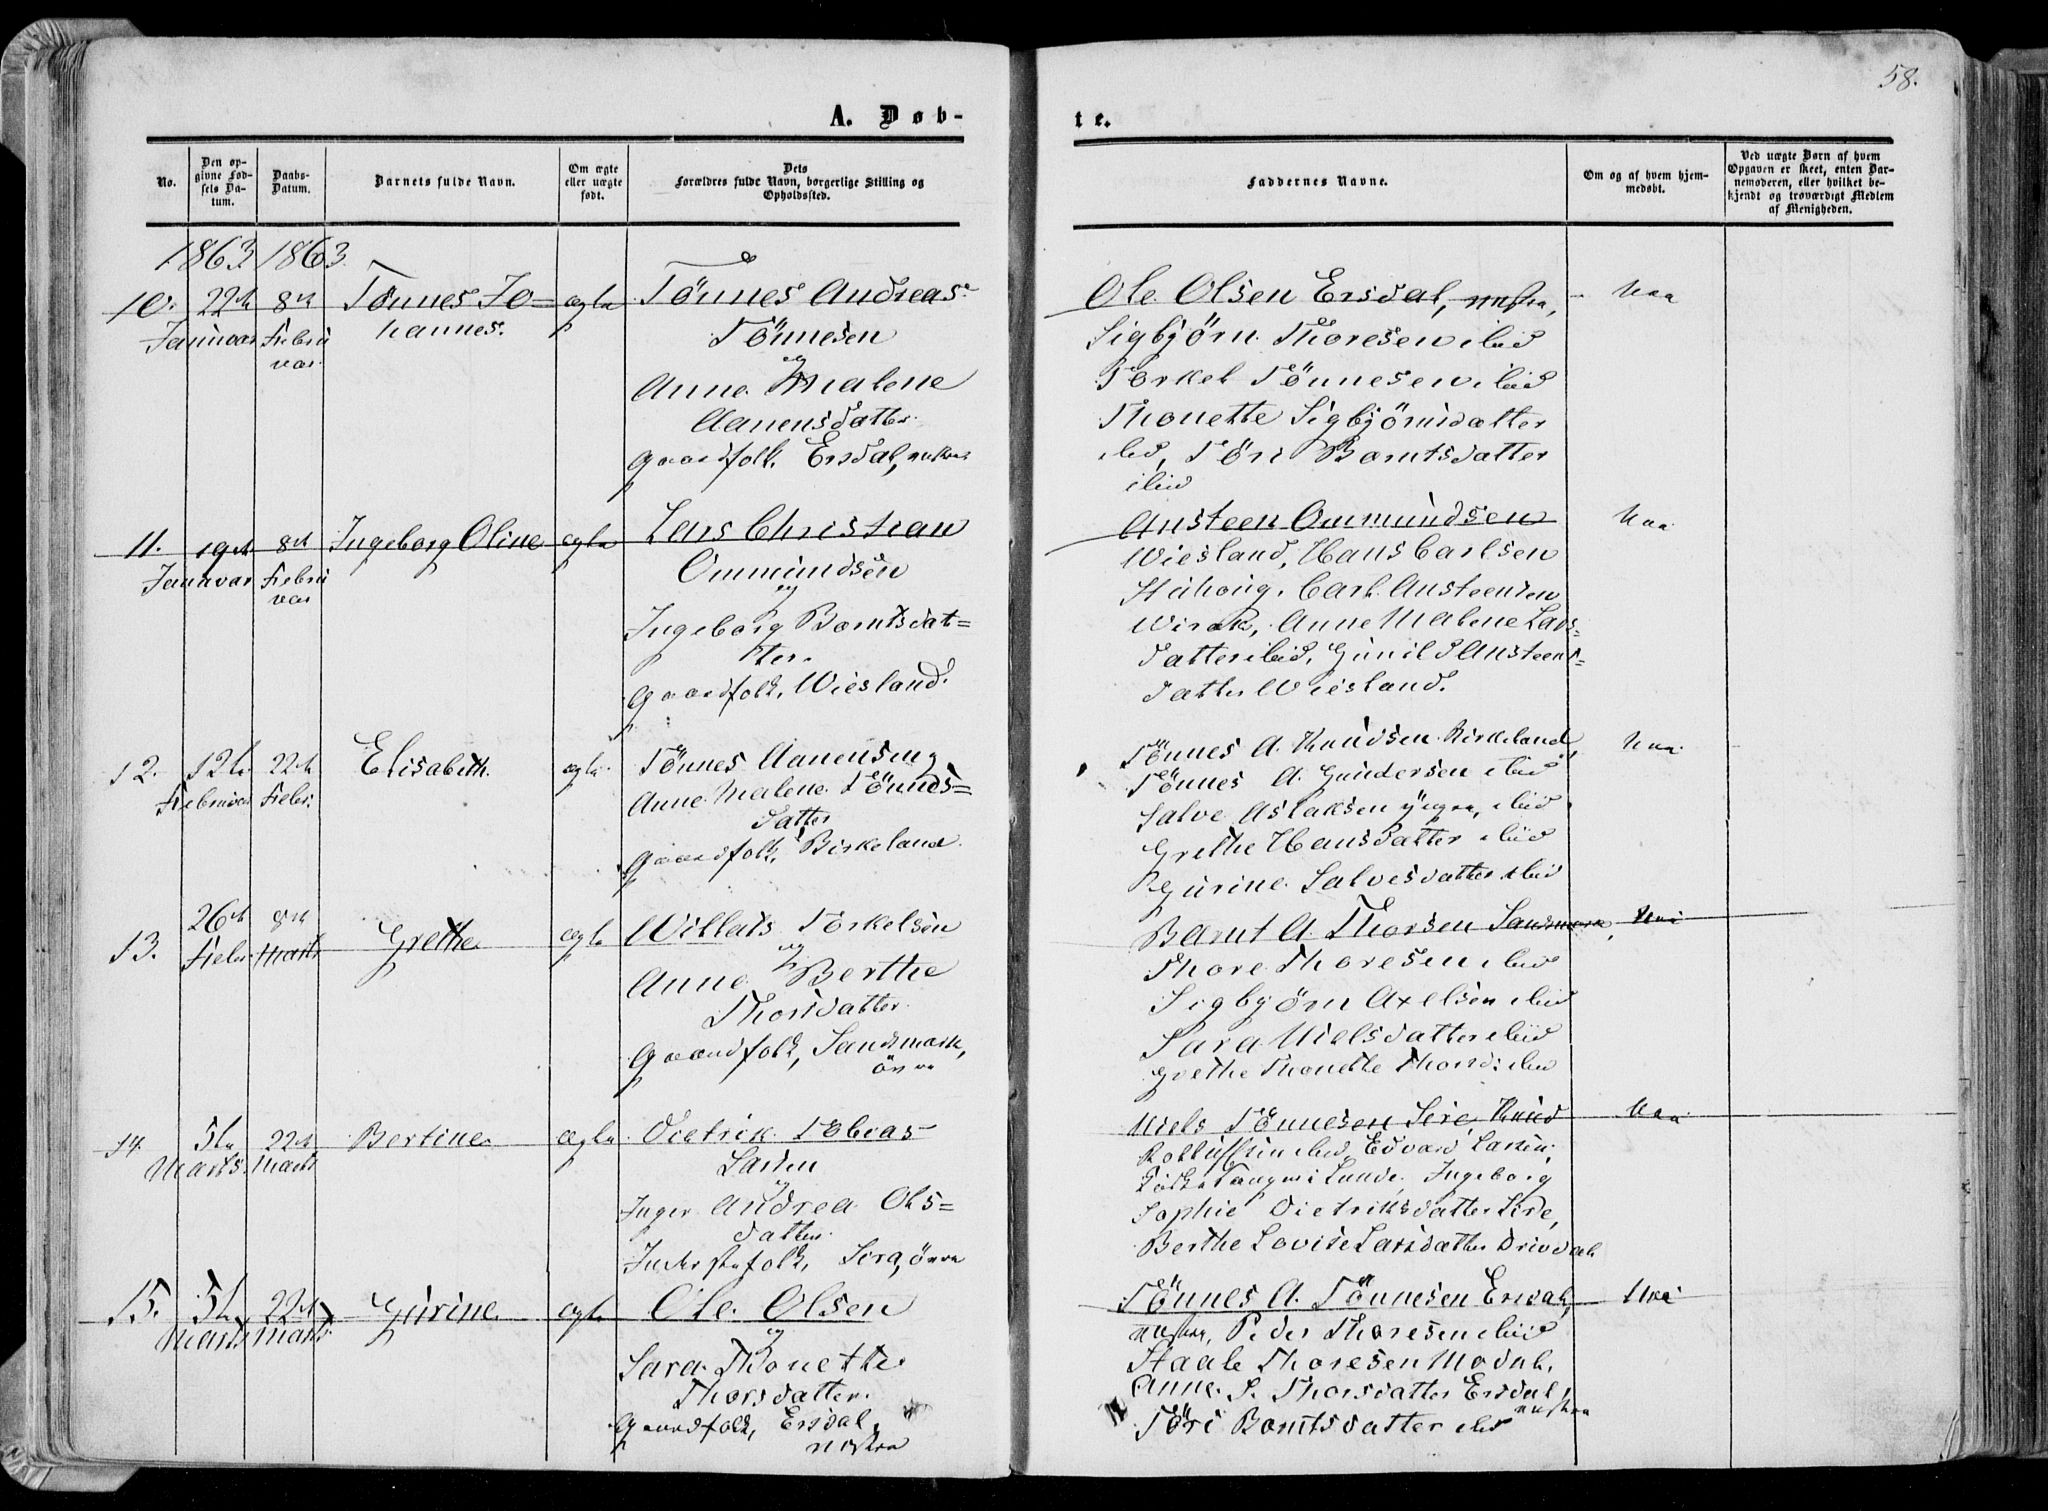 58.
A. Døb-
te.
No.
Den op-
givne Fød-
sels Da-
tum.
Daabs-
Datum.
Barnets fulde Navn.
Om ægte
eller uægte
født.
Dets
Forældres fulde Navn, borgerlige Stilling og
Opholdssted.
Faddernes Navne.
Om og af hvem hjem-
medøbt.
Ved uægte Børn af hvem
Opgaven er skeet, enten Bar-
nemoderen, eller hvilket be-
kjendt og troværdigt Medlem
af Menigheden.
1863 1863
10.
22de
Januar
8de
Febru
var
Tønnes Jo=
hannes.
ægte
Tönnes Andreas
Tönnesen
og
Anne Malene
Aanensdatter
Gaardfolk, Ersdal,
Ole Olsen Ersdal,
Sigbjörn Thoresen ibid
Torkel Tönnesen ibid
Thonette Sigbjörnsdatter
ibid, Töri Borntsdatter
ibid
11.
19de
Januar
8de
Febru
var
Ingeborg Oline
ægte
Lars Christian
Ommundsen
og
Ingeborg Borntsdat=
ter.
Gaardfolk, Wiesland.
Ansteen Ommundsen
Wiesland, Hans Carlsen
Carl Ansteensen
Wirak, Anne Malene Lars=
datter ibid, Gunild Ansteens=
datter Wiesland.
12.
12te
Februar
22de
Febr.
Elisabeth.
ægte
Tönnes Aanensen og
Anne Malene Tönnes=
datter
Gaardfolk, Birkeland.
Tönnes A. Knudsen Birkeland,
Tönnes A. Gundersen ibid
Salve Aslaksen yngre, ibid.
Grethe Hansdatter ibid
Gurine Salvesdatter ibid
13.
26de
Febr.
8de
Marts
Grethe
ægte
Willats Torkelsen
og
Anne Berthe
Thorsdatter
Gaardfolk, Sandsmark,
övre
Bernt A. Thorsen Sandsmark,
Thore Thoresen ibid
Sigbjörn Axelsen ibid
Sara Nielsdatter ibid
Grethe Thonette Thorsd: ibid
14.
5te
Marts.
22de
Marts
Bertine
ægte
Dietrik Tobias
Larsen
og
Inger Andrea Ols=
datter.
Inderstefolk, Sira, övre
Niels Tönnesen Sire, Knud
ibid, Edvard Larsen,
Lunde, Ingeborg
Sophie Dietriksdatter Sire,
Berthe Lovise Larsdatter Drivdal
15.
5te
Marts
22de
Marts
Gurine
ægte
Ole Olsen
og
Sara Thonette
Thorsdatter.
Gaardfolk, Ersdal,
Tönnes A. Tönnesen Ersdal,
Peder Thoresen ibid
Staale Thoresen Modal,
Anne S. Thorsdatter Ersdal,
Töri Borntsdatter ibid